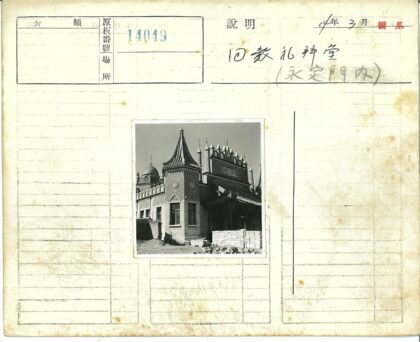 分類
原板番號
場所
14049
說明
年3月
回教礼拜堂
(永定門内)